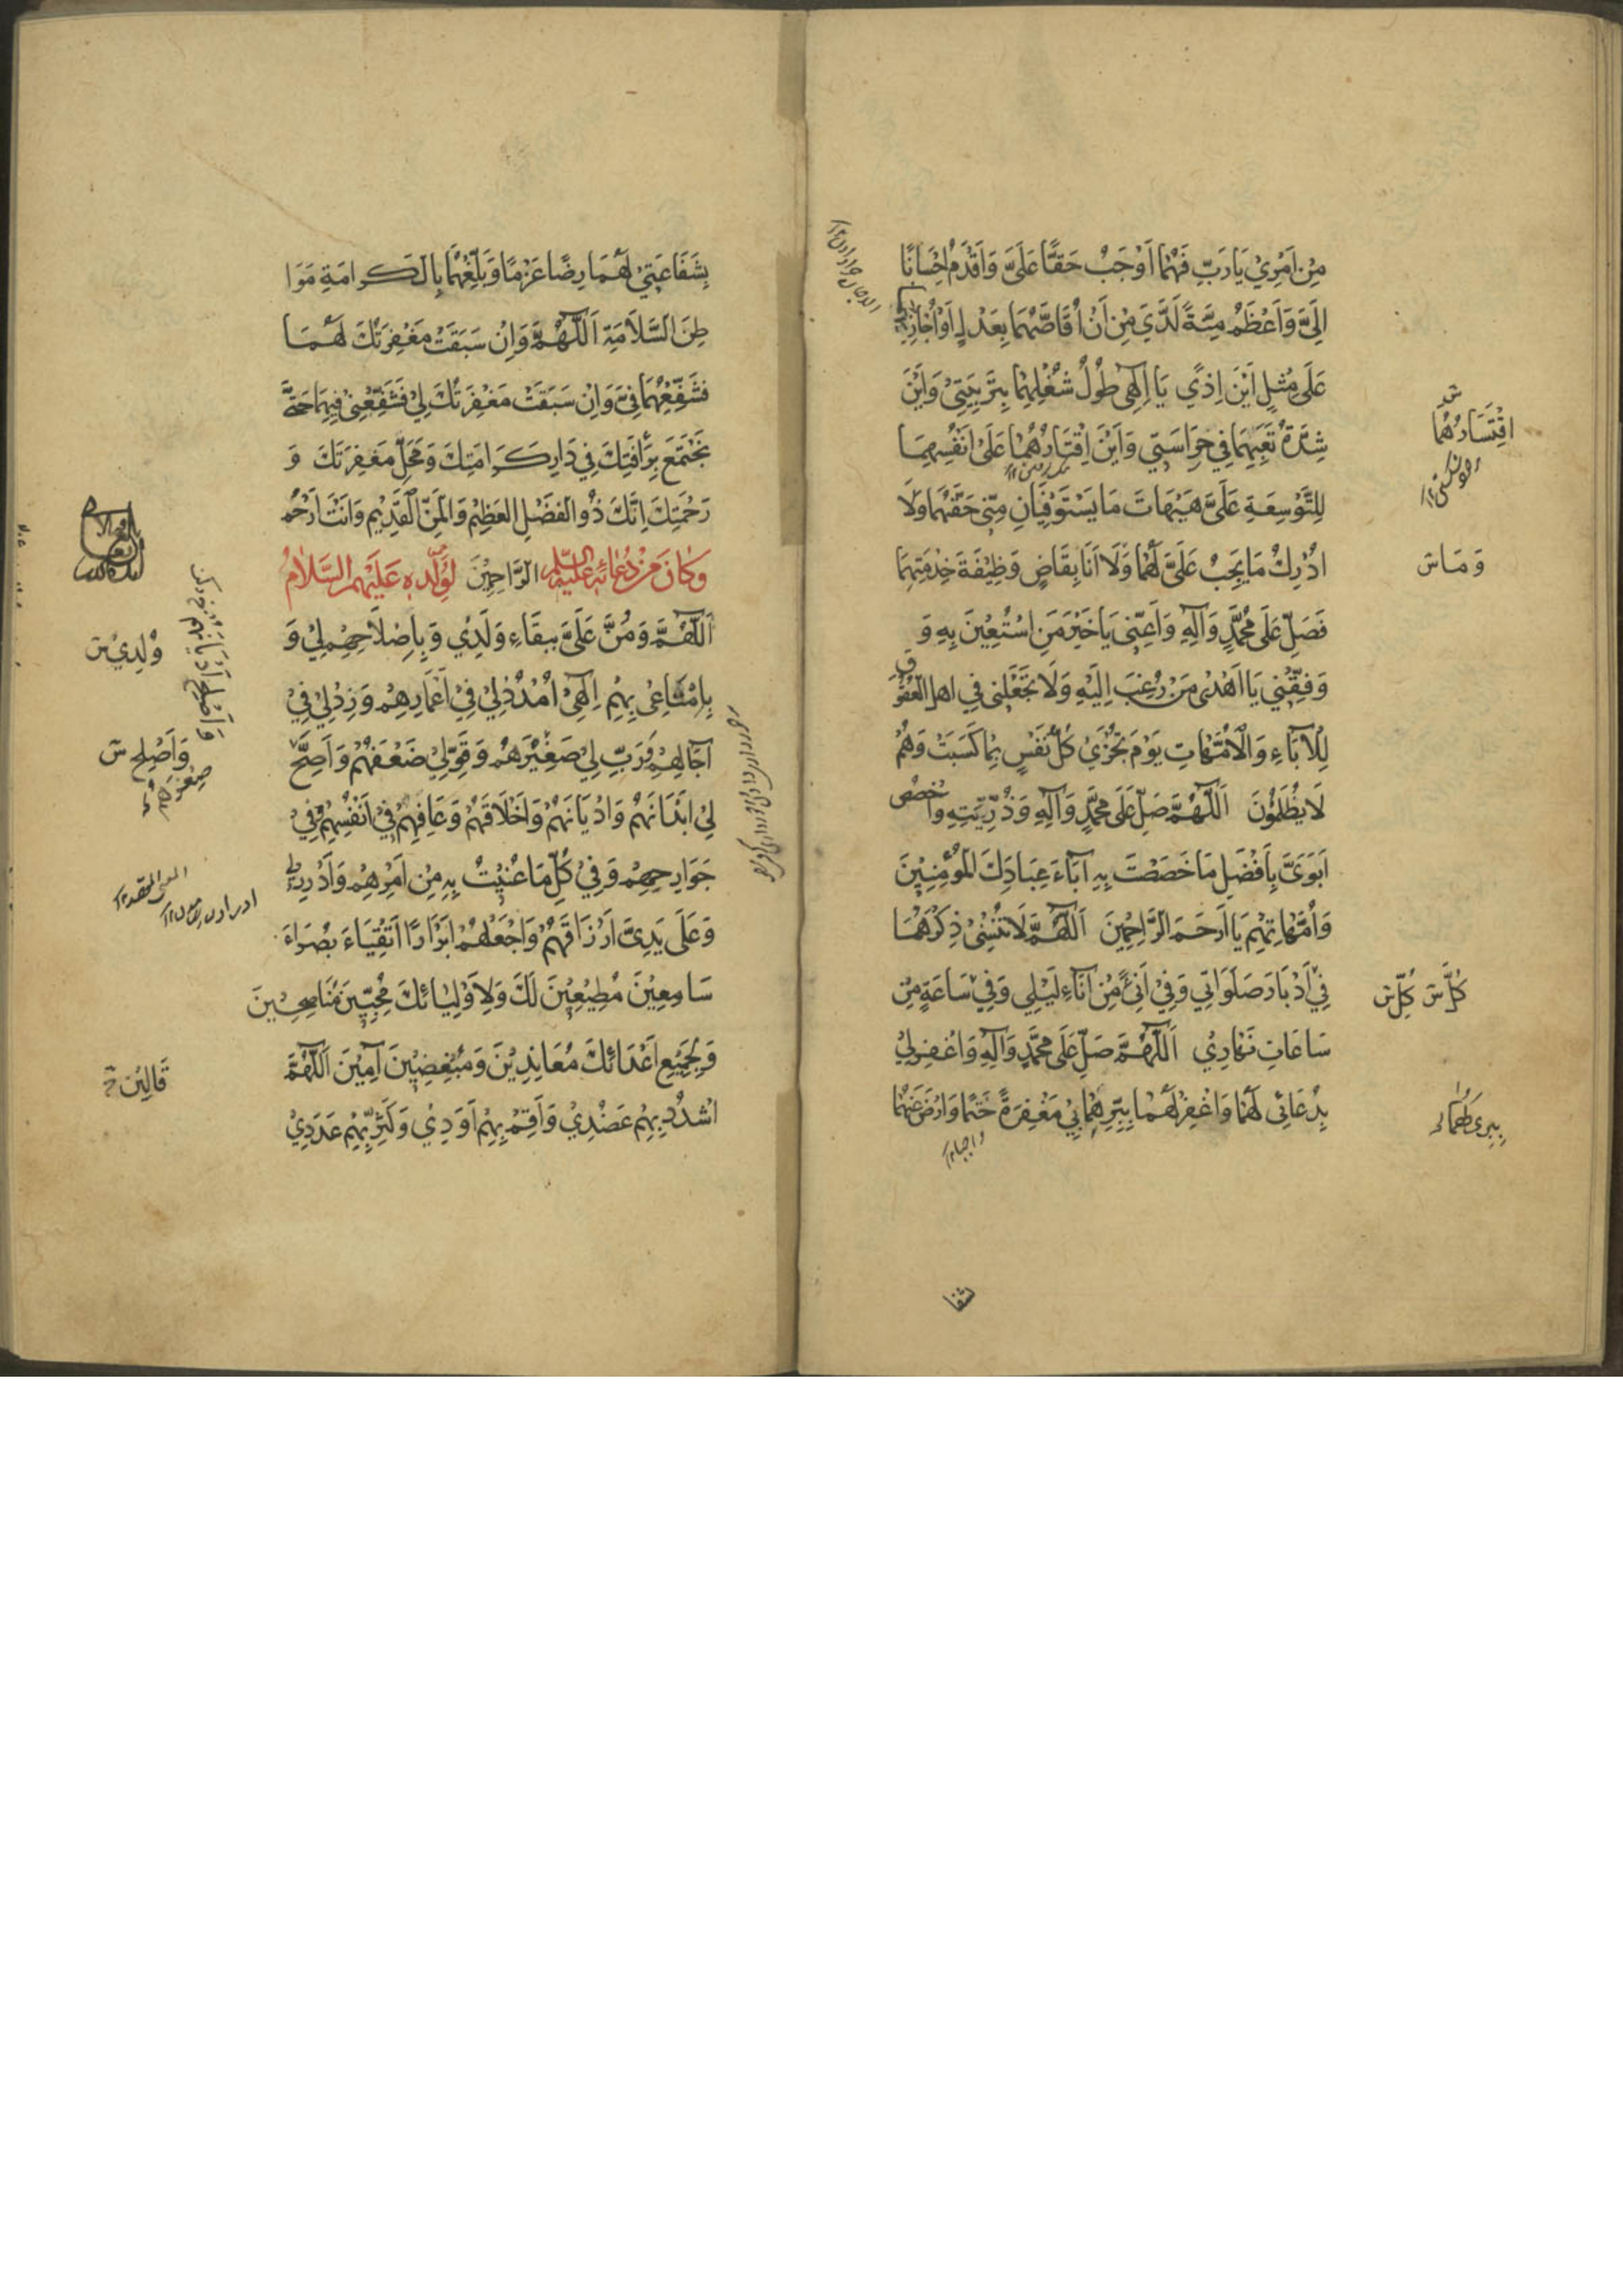 مِنْ اَمْرِيْ يَا رَبِّ فَهُمَا اَوْجَبُ حَقًّا عَلَىَّ وَاَقْدَمُ اِحْسَانًا
اِلَىَّ وَاَعْظَمُ مِنَّةً لَدَىَّ مِنْ اَنْ اُقَاصَّهُمَا بِعَدْلٍ اَوْ اُجَازِيَهُمَا
عَلَى مِثْلٍ اَيْنَ اِذًى يَا اِلٰهِى طُوْلُ شُغْلِهِمَا بِتَرْبِيَتِىْ وَاَيْنَ
شِدَّةُ تَعَبِهِمَا فِي حِرَاسَتِي وَاَيْنَ اِقْتَارُهُمَا عَلَى اَنْفُسِهِمَا
لِلتَّوْسِعَةِ عَلَىَّ هَيْهَاتَ مَا يَسْتَوْفِيَانِ مِنِّى حَقَّهُمَا وَلَا
اُدْرِكُ مَا يَجِبُ عَلَىَّ لَهُمَا وَلَا اَنَا بِقَاضٍ وَظِيْفَةَ خِدْمَتِهِمَا
فَصَلِّ عَلَى مُحَمَّدٍ وَآلِهِ وَاَعِنِّى يَا خَيْرَ مَنِ اسْتُعِيْنَ بِهِ وَ
وَفِقْنِي يَا اَهْدٰى مَنْ رُغِبَ اِلَيْهِ وَلَا تَجْعَلْنِي فِي اهل العُقُوْقِ
لِلْآبَاءِ وَالْاُمَّهَاتِ يَوْمَ تُجْزٰي كُلُّ نَفْسٍ بِمَا كَسَبَتْ وَهُمْ
لَا يُظْلَمُوْنَ اَللّٰهُمَّ صَلِّ عَلَى مُحَمَّدٍ وَآلِهِ وَذُرِّيَّتِهِ وَاخْصُصْ
اَبَوَىَّ بِاَفْضَلِ مَا خَصَصْتَ بِهِ آبَاءَ عِبَادِكَ الْمُؤْمِنِيْنَ
وَاُمَّهَاتِهِمْ يَا اَرْحَمَ الرَّاحِمِيْنَ اَللّٰهُمَّ لَا تُنْسِنِىْ ذِكْرَهُمَا
فِيْ اَدْبَارِ صَلَوَاتِي وَفِيْ اَنًى مِنْ آنَاءِ لَيْلِي وَفِيْ سَاعَةٍ مِنْ
سَاعَاتِ نَهَارِيْ اَللّٰهُمَّ صَلِّ عَلَى مُحَمَّدٍ وَآلِهِ وَاغْفِرْلِيْ
بِدُعَائِى لَهُمَا وَاغْفِرْ لَهُمَا بِبِرِّهِمَا بِيْ مَغْفِرَةً حَتْمًا وَارْضَ عَنْهُمَا
اقْتِسَارُهُمَا
وَمَا س
كُلِّ
شفا
بِشَفَاعَتِيْ لَهُمَا رِضًا عَزْمًا وَبَلِّغْهُمَا بِالْكَرَامَةِ مَوَا
طِنَ السَّلَامَةِ اَللّٰهُمَّ وَاِنْ سَبَقَتْ مَغْفِرَتُكَ لَهُمَا
فَشَفِّعْهُمَا فِيَّ وَاِنْ سَبَقَتْ مَغْفِرَتُكَ لِيْ فَشَفِّعْنِىْ فِيهِمَا حَتَّى
نَجْتَمِعَ بِرَأْفَتِكَ فِي دَارِ كَرَامَتِكَ وَمَحَلِّ مَغْفِرَتِكَ وَ
رَحْمَتِكَ اِنَّكَ ذُو الْفَضْلِ الْعَظِيْمِ وَالْمَنِّ الْقَدِيْمِ وَاَنْتَ اَرْحَمُ
الرَّاحِمِيْنَ وَكَانَ مِنْ دُعَائِهِ عَلَيْهِ السَّلَام لِوُلْدِهِ عَلَيْهِمُ السَّلَامُ
اَللّٰهُمَّ وَمُنَّ عَلَىَّ بِبَقَاءِ وَلَدِيْ وَبِاِصْلَاحِهِمْ لِيْ وَ
بِاِمْتَاعِى بِهِمْ اِلٰهِىْ اُمْدُدْ لِيْ فِيْ اَعْمَارِهِمْ وَزِدْ لِيْ فِيْ
آجَالِهِمْ وَرَبِّ لِيْ صَغِيْرَهُمْ وَقَوِّ لِيْ ضَعِيْفَهُمْ وَاَصِحَّ
لِيْ اَبْدَانَهُمْ وَاَدْيَانَهُمْ وَاَخْلَاقَهُمْ وَعَافِهِمْ فِيْ اَنْفُسِهِمْ وَفِيْ
جَوَارِحِهِمْ وَفِيْ كُلِّ مَا عُنِيْتُ بِهِ مِنْ اَمْرِهِمْ وَاَدْرِرْ لِي
وَعَلَى يَدِىَّ اَرْزَاقَهُمْ وَاجْعَلْهُمْ اَبْرَارًا اَتْقِيَاءَ بُصَرَاءَ
سَامِعِيْنَ مُطِيْعِيْنَ لَكَ وَلِاَوْلِيَائِكَ مُحِبِّيْنَ مُنَاصِحِيْنَ
وَلِجَمِيْعِ اَعْدَائِكَ مُعَانِدِيْنَ وَمُبْغِضِيْنَ آمِيْنَ اَللّٰهُمَّ
اشْدُدْ بِهِمْ عَضُدِيْ وَاَقِمْ بِهِمْ اَوَدِيْ وَكَثِّرْ بِهِمْ عَدَدِيْ
وُلْدِيْ س
وَاَصْلِحْ س
قَالِيْنَ